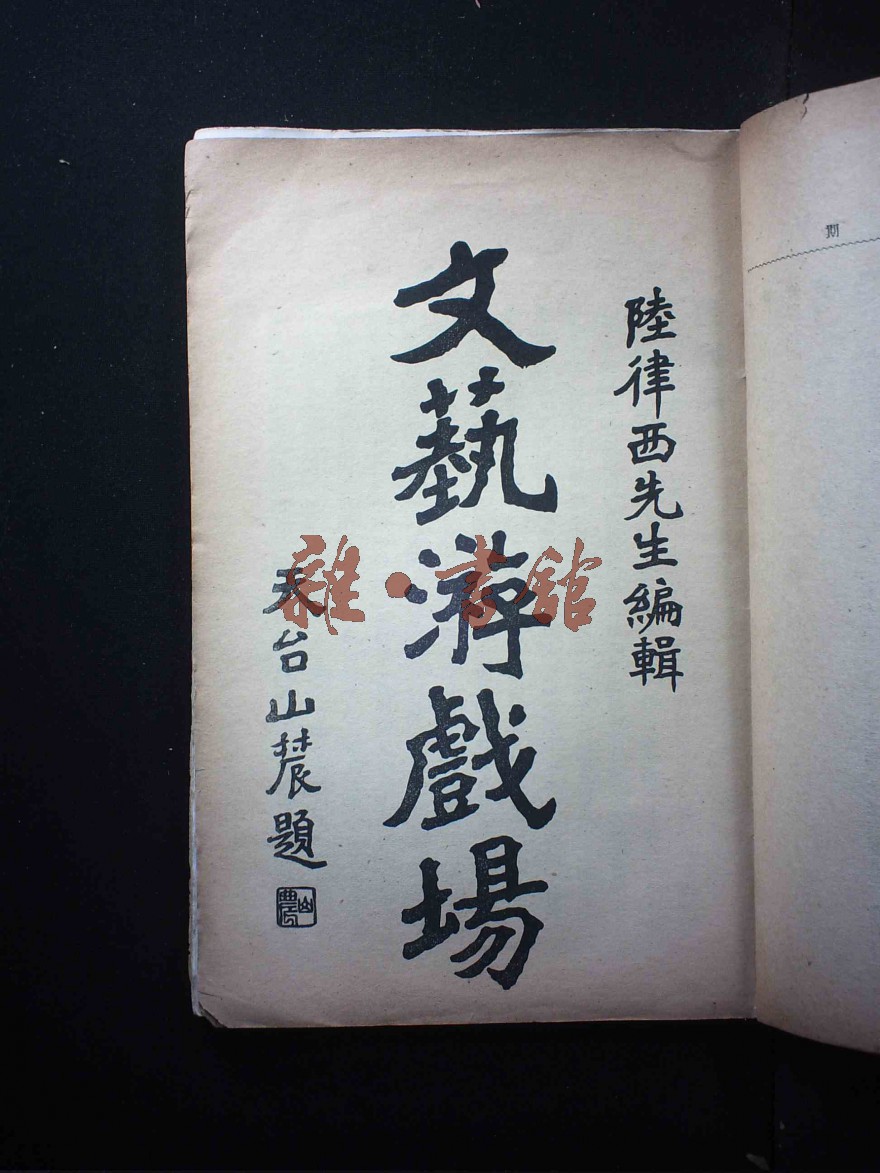 期
陸律西先生編輯
文藝游戲場
天台山農題
山農
雜·書館